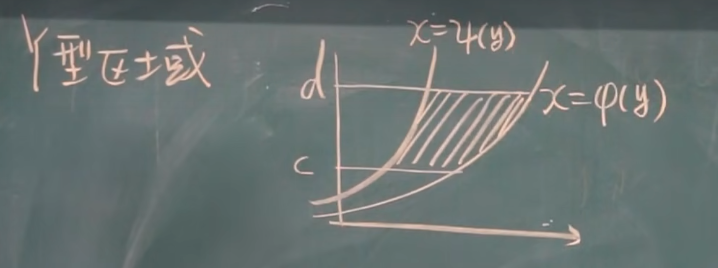 Y型区域
x=ψ(y)
d
x=φ(y)
c